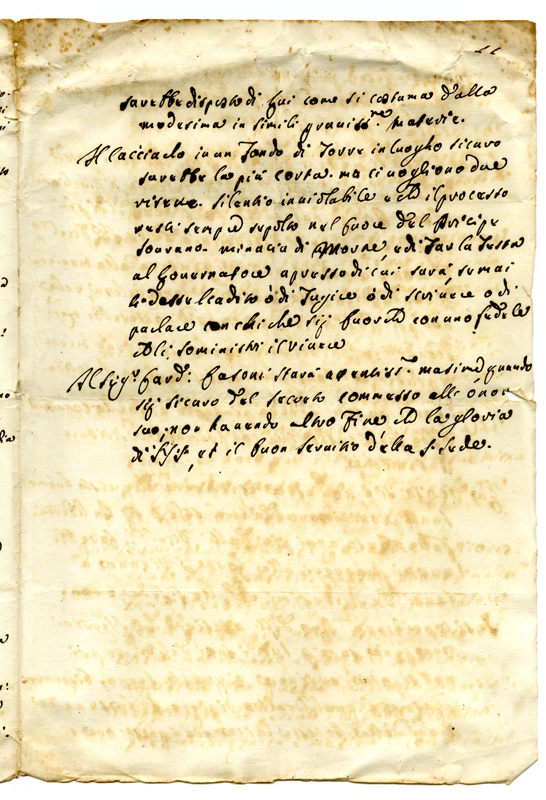 sarebbe disposto di qui come si costuma dalla
medesima in simili graviss.me materie.
Il cacciarlo in un fondo di Torre in luogho sicuro
sarebbe la più corta. ma ci vogliono due
riserve. silentio inviolabile e che il processo
resti sempre sepolto nel cuore del Principe
sourano. minacia di Morte, e di far la Testa
al Governatore apresso di cui sarà, se mai
le desse l'adito ò di fugire ò di scrivere o di
parlare con chi che sij fuor che con uno fedele
che li soministri il vivere
Al Sig.r Card: Casoni starà apertiss.o masime quando
sij sicuro del secreto commesso alle
suo, non havendo altro fine che la gloria
di et il buon servitio della S. Sede.